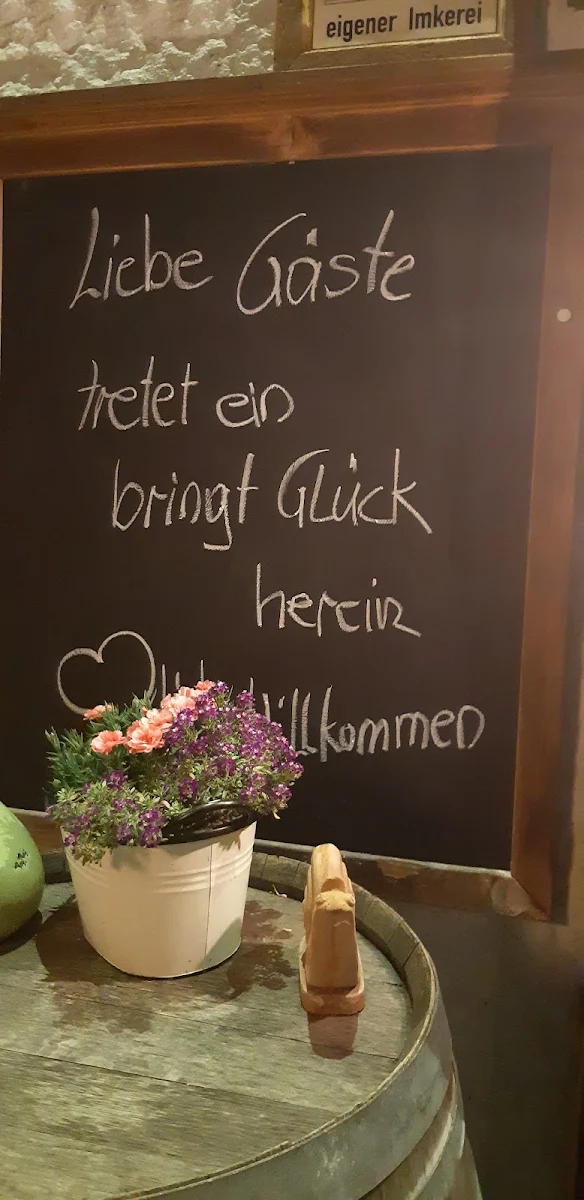 eigener Imkerei
Liebe Gäste
tretet ein
bringt Glück
herein
illkommen